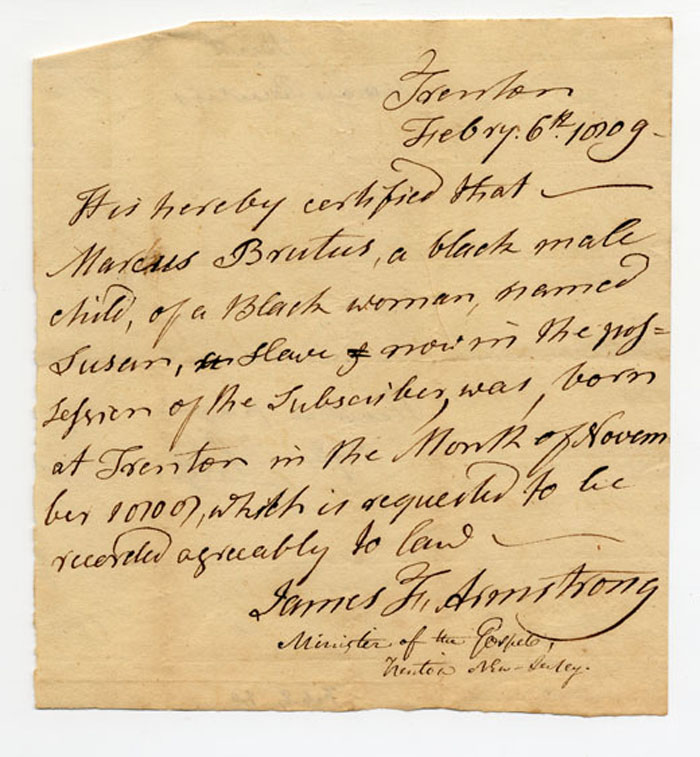 Trenton
Febry. 6th. 1809-
It is hereby certified that
Marcus Brutus, a black male
child, of a Black woman, named
Susan, a slave & now in the pos=
session of the Subscriber, was, born
at Trenton in the Month of Novem
ber 1808, which is requested to be
recorded agreeably to law
James F. Armstrong
Minister of the Gospel,
Trenton New-Jersey.